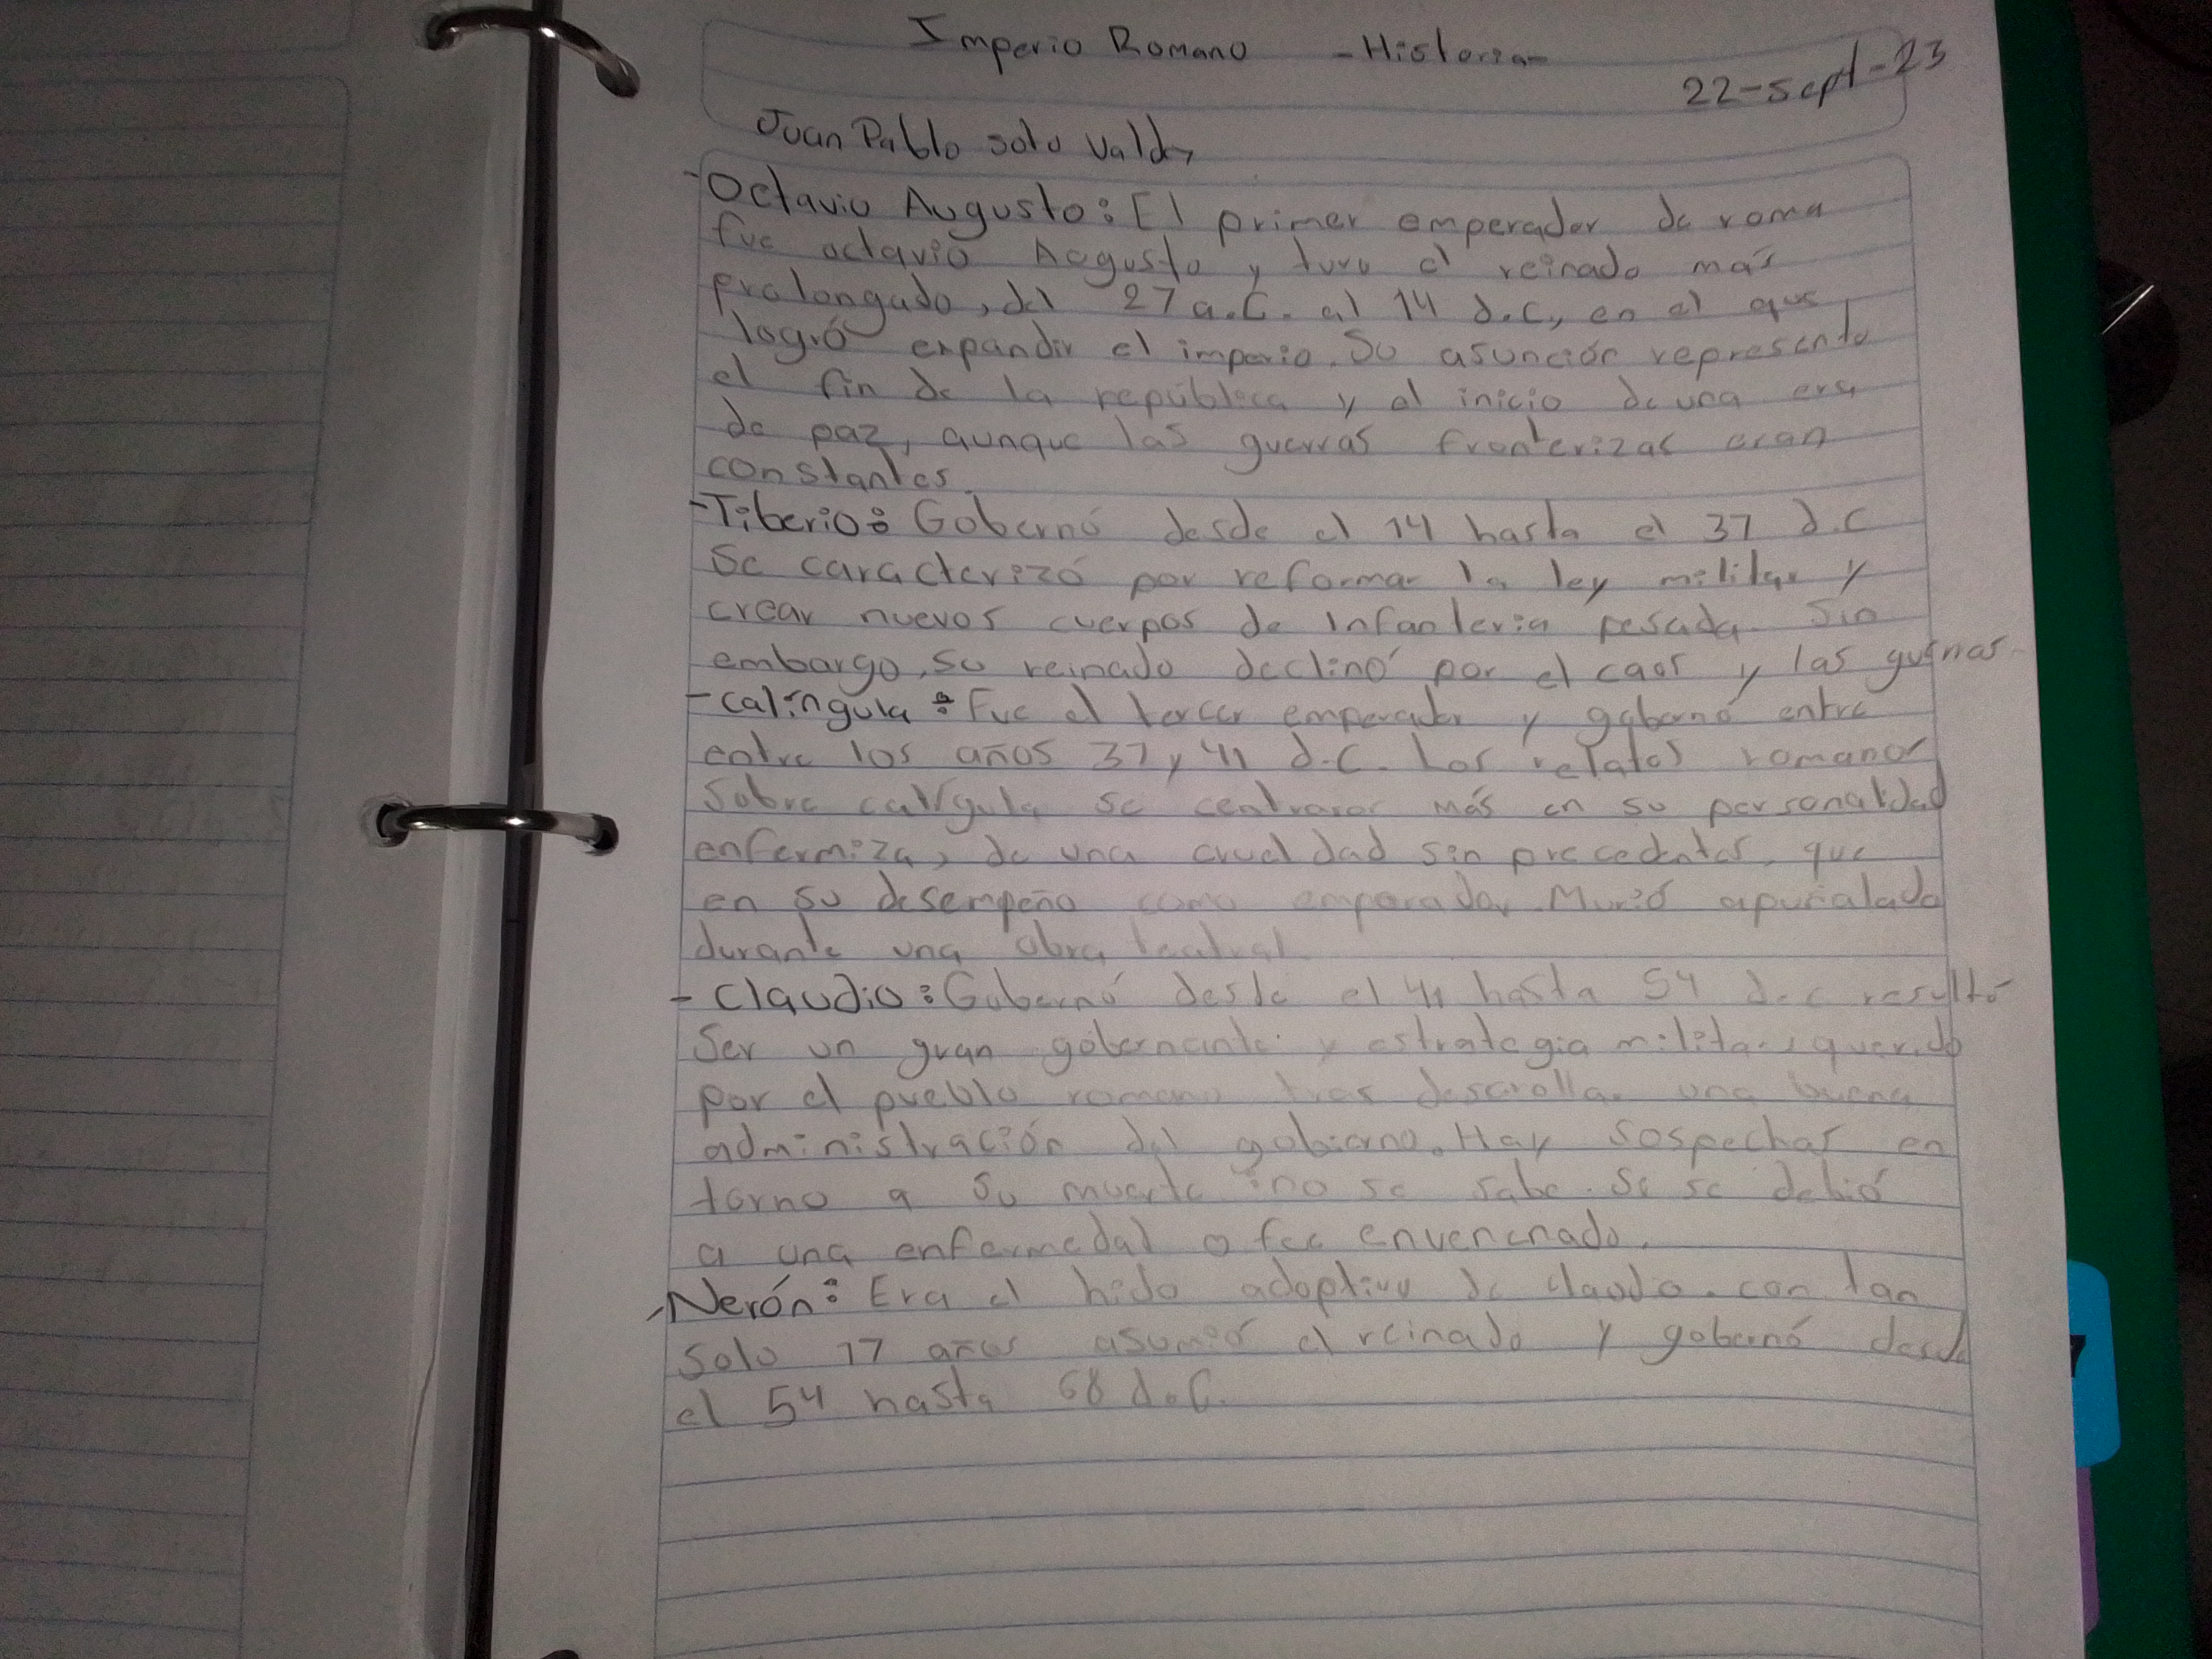 Imperio Romano -Historia-
22-sept-23
Juan Pablo soto Valdez
-Octavio Augusto: El primer emperador de roma
fue octavio Augusto y tuvo el reinado más
prolongado, del 27 a.C. al 14 d.C, en el que
logró expandir el imperio. Su asunción represento
el fin de la república y el inicio de una era
de paz, aunque las guerras fronterizas eran
constantes.
-Tiberio: Gobernó desde el 14 hasta el 37 d.C
Se caracterizó por reformar la ley militar y
crear nuevos cuerpos de infanteria pesada. Sin
embargo, su reinado declinó por el caos y las guerras.
-calíngula: Fue el tercer emperador y gobernó entre
entre los años 37 y 41 d.C. Los relatos romanos
sobre calígula se centraron más en su personalidad
enfermiza, de una crueldad sin precedentes, que
en su desempeño como emperador. Murió apuñalado
durante una obra teatral
- Claudio: Gobernó desde el 41 hasta 54 d.c resultó
Ser un gran gobernante y estrategia militar, querido
por el pueblo romano tras desarollar una buena
administración del gobierno. Hay sospechas en
torno a su muerte no se sabe. Si se debió
a una enfermedad o fue envenenado.
-Nerón: Era el hido adoptivo de claudo. con tan
solo 17 años asumió el reinado y gobernó desde
el 54 hasta 68 d.C.
7